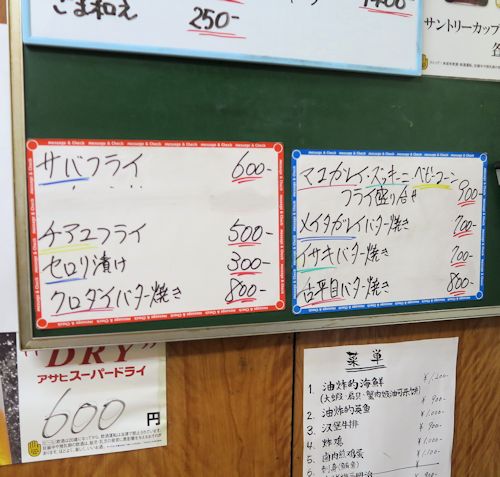 ごま和え
250-
1400-
サントリーカップ
message & Check
サバフライ 600-
チアユフライ 500-
セロリ漬け 300-
クロダイバター焼き 800-
マコガレイ・ズッキーニ ベビーコーン
フライ盛り合せ 900-
メイタガレイバター焼き 700-
イサキバター焼き 700-
古平目バター焼き 800-
"DRY"
アサヒスーパードライ
600円
菜単
1. 油炸的海鮮 ¥1,200-
(大蝦・扇貝・蟹肉奶油可乐饼)
2. 油炸的英魚 ¥1,000-
3. 汉堡牛排 ¥900-
4. 炸鸡 ¥1,000-
5. 卤肉煎鸡蛋 ¥1,100-